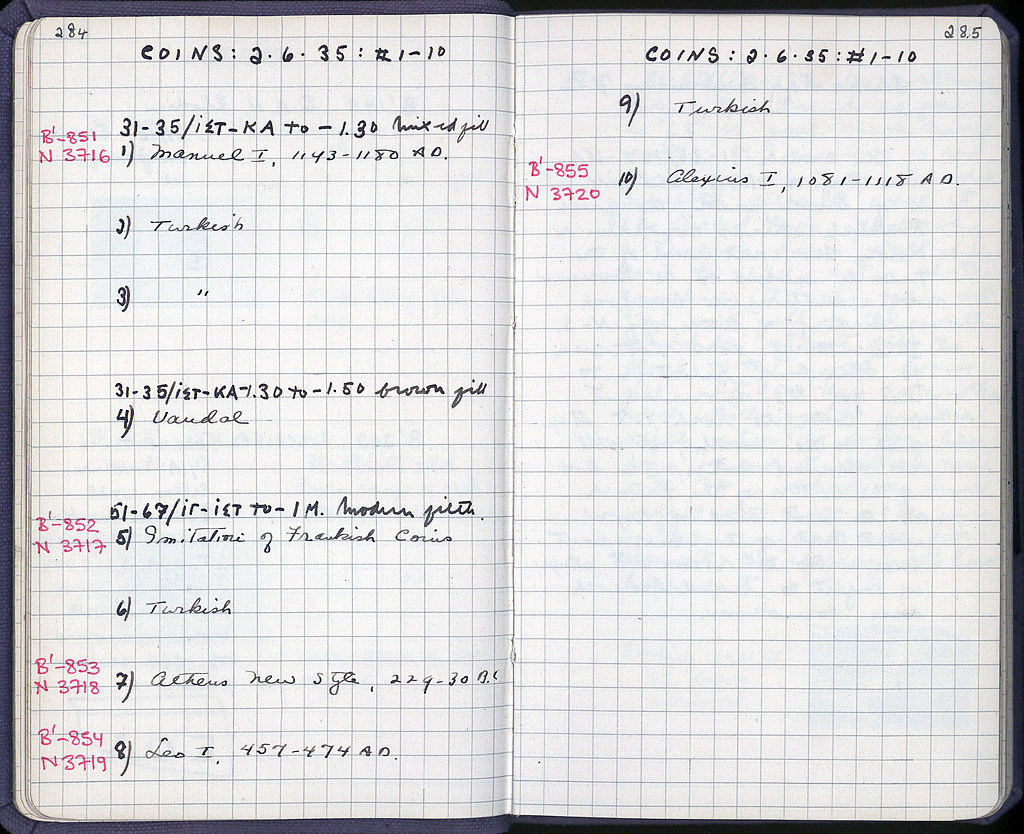 284
COINS: 2·6·35: #1-10
31-35/ΙΣΤ-ΚΑ to -1.30 mixed fill
B'-851
N 3716
1) Manuel I, 1143-1180 A.D.
2) Turkish
3) "
31-35/ΙΣΤ-ΚΑ-1.30 to -1.50 brown fill
4) Vandal
51-67/ΙΓ-ΙΣΤ to -1 M. Modern filth.
B'-852
N 3717
5) Imitation of Frankish Coins
6) Turkish
B'-853
N 3718
7) Athens new style, 229-30 B.C
B'-854
N 3719
8) Leo I, 457-474 A.D.
285
COINS: 2·6·35: #1-10
9) Turkish
B'-855
N 3720
10) Alexius I, 1081-1118 A.D.